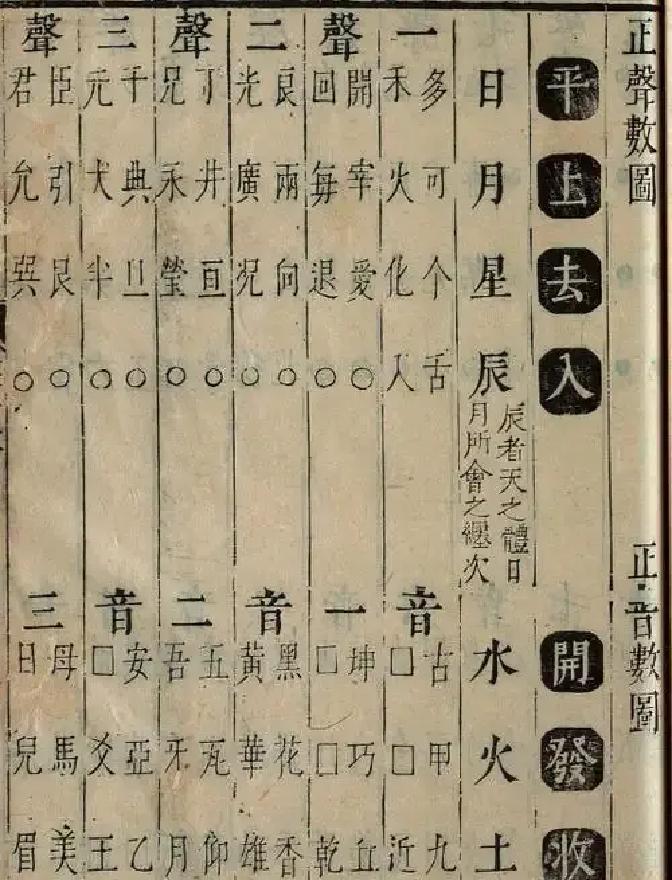 正聲數圖
平上去入
日月星辰
辰者天之體日
月所會之纏次
一聲二聲三聲
多可个舌
禾火化
開宰愛○
回每退○
良兩向○
光廣况○
丁井亘○
兄永瑩○
千典旦○
元犬半○
臣引艮○
君允巽○
正音數圖
開發收
水火土
音一音二音三
古甲九
□□近
坤巧丘
□□乾
黑花香
黃華雄
五瓦仰
吾牙月
安亞乙
□爻王
母馬美
日兒眉